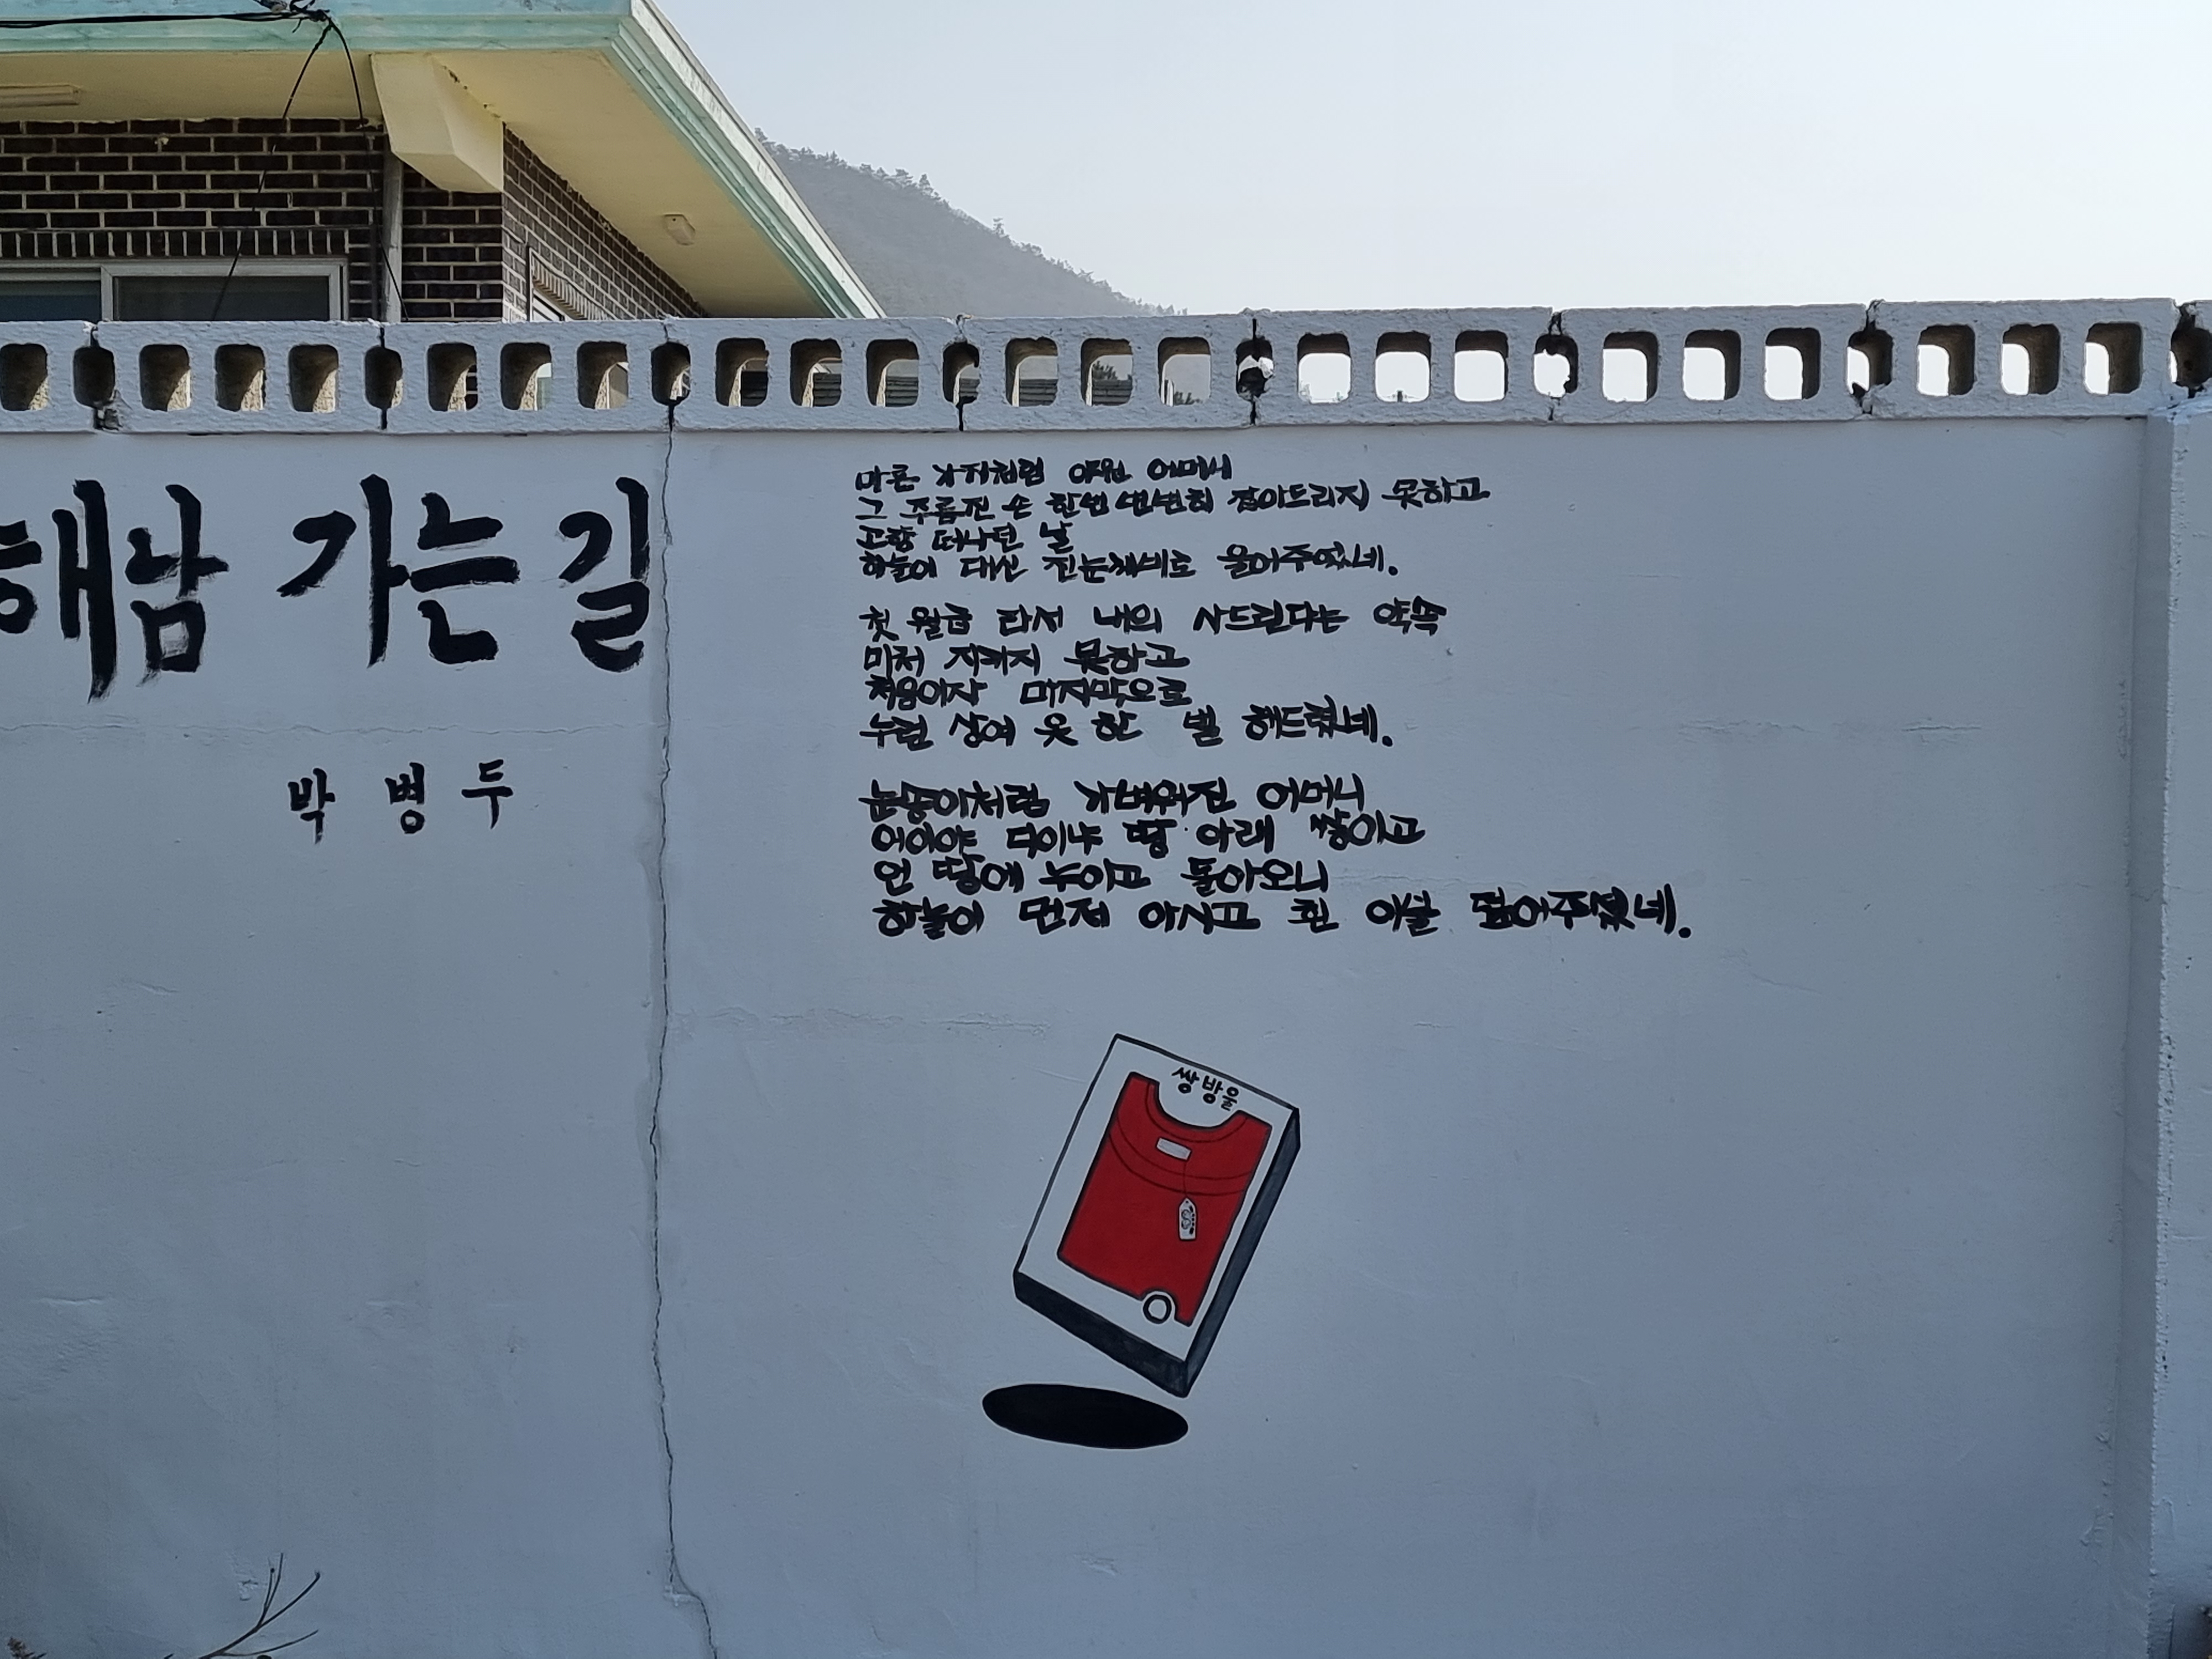 해남 가는 길
박 병 두
마른 가지처럼 야윈 어머니
그 주름진 손 한번 변변히 잡아드리지 못하고
고향 떠나던 날
하늘이 대신 진눈깨비로 울어주었네.
첫 월급 타서 내의 사드린다는 약속
미처 지키지 못하고
처음이자 마지막으로
누런 상여 옷 한 벌 해드렸네.
눈송이처럼 가벼워진 어머니
어이야 다이냐 땅 아래 쌓이고
언 땅에 누이고 돌아오니
하늘이 먼저 아시고 흰 이불 덮어주셨네.
쌍방울